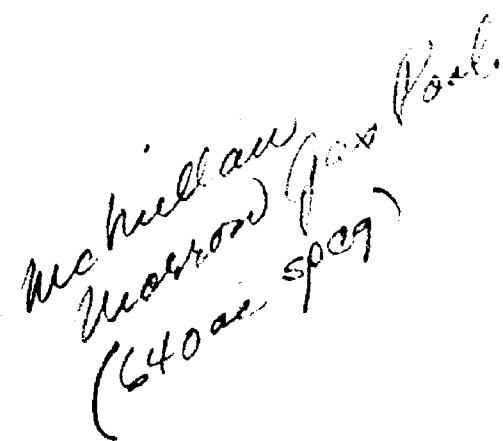 McMillan
Morrow Gas Pool.
(640 ac spcg)